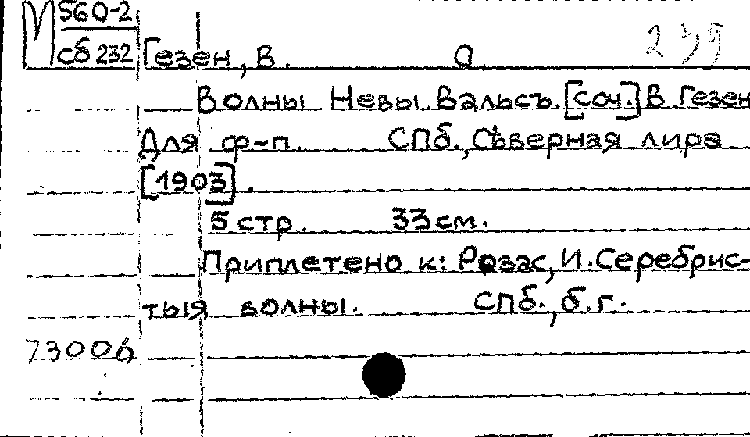 М 560-2
сб 232
Гезен, В. а 239
Волны Невы. Вальсъ. [соч.] В Гезен
Для ф-п. СПб., Сѣверная лира
[1903].
5 стр. 33 см.
Приплетено к: Розас, И. Серебрис-
тыя волны. СПб., б.г.
73006